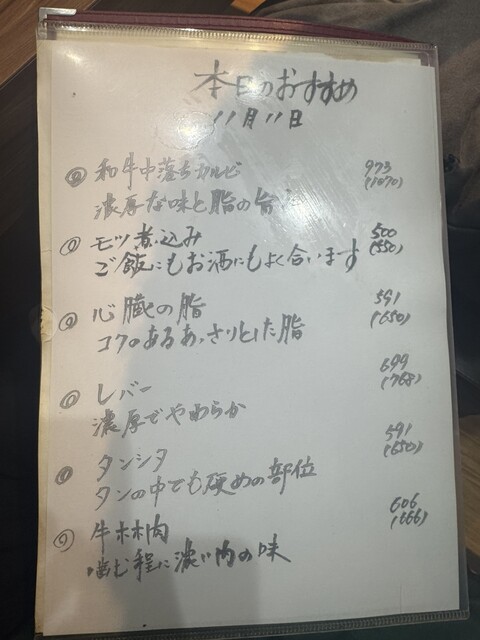 本日のおすすめ
11月11日
◎ 和牛中落ちカルビ 973
濃厚な味と脂の旨 (1070)
◎ モツ煮込み 500
ご飯にもお酒にもよく合います (550)
◎ 心臓の脂 591
コクのあるあっさりとした脂 (650)
◎ レバー 699
濃厚でやわらか (768)
◎ タンシタ 591
タンの中でも硬めの部位 (650)
◎ 牛ホホ肉 606
噛む程に濃い肉の味 (666)